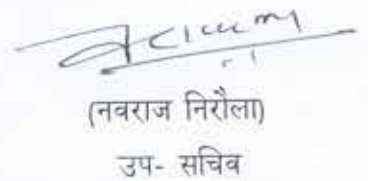 (नवराज निरौला)
उप- सचिव